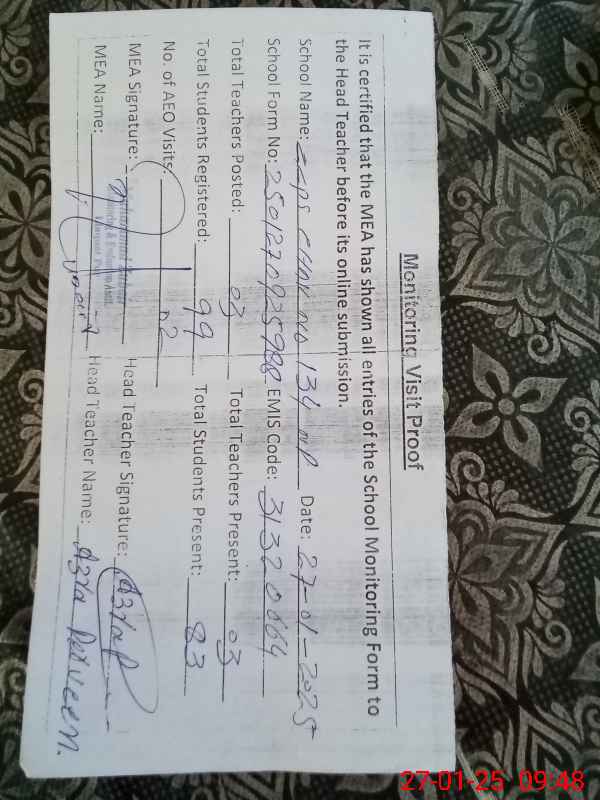 Monitoring Visit Proof
It is certified that the MEA has shown all entries of the School Monitoring Form to
the Head Teacher before its online submission.
School Name: GGPS CHAK NO 134 NP Date: 27-01-2025
School Form No: EMIS Code: 31320064
Total Teachers Posted: 03 Total Teachers Present: 03
Total Students Registered: 99 Total Students Present: 83
No. of AEO Visits: 02
MEA Signature: Head Teacher Signature: Azra P
MEA Name: Head Teacher Name: Azra Perveen.
27-01-25 09:48